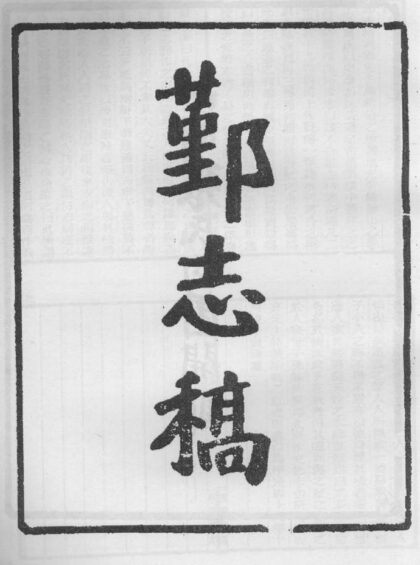 鄞志稿